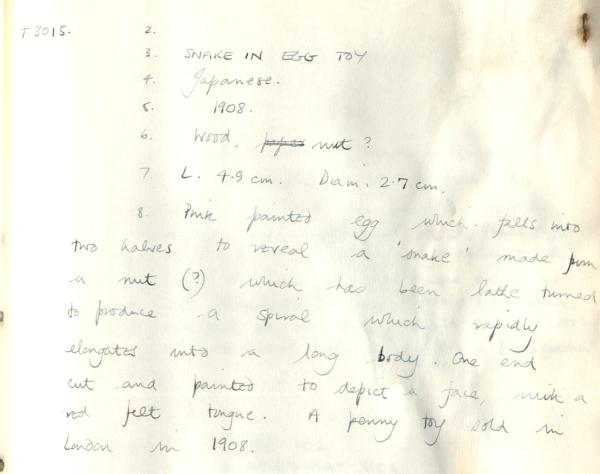 T 3015. 2.
3. SNAKE IN EGG TOY
4. Japanese.
5. 1908.
6. Wood, paper nut ?
7. L. 4.9 cm. Diam. 2.7 cm.
8. Pink painted egg which falls into
two halves to reveal a 'snake' made from
a nut (?) which has been lathe turned
to produce a spiral which rapidly
elongates into a long body. One end
cut and painted to depict a face, with a
red felt tongue. A penny toy sold in
London in 1908.